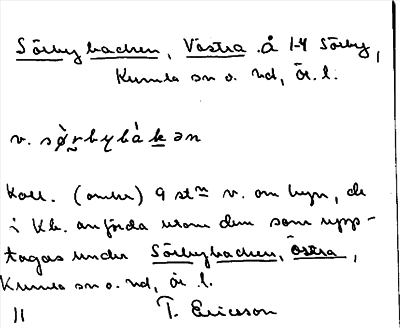 Sörbybacken, Västra. å 1-4 Sörby,
Kumla sn o. hd, Ör. l.
v. sø̀rbybàkən
Koll. (omkr) 9 stn v. om byn, de
i Kb. anförda utom dem som upp-
tagas under Sörbybacken, Östra,
Kumla sn o. hd, Ör l.
T. Ericsson